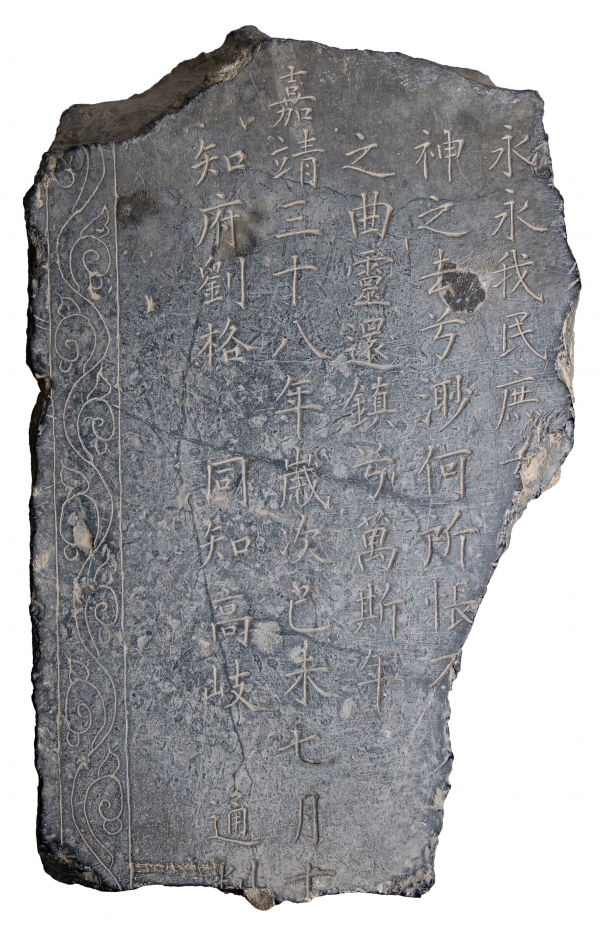 永永我民庶
神之去兮渺何所悵不
之曲靈還鎮兮萬斯年
嘉靖三十八年歲次己未七月十
知府劉格 同知高岐 通判